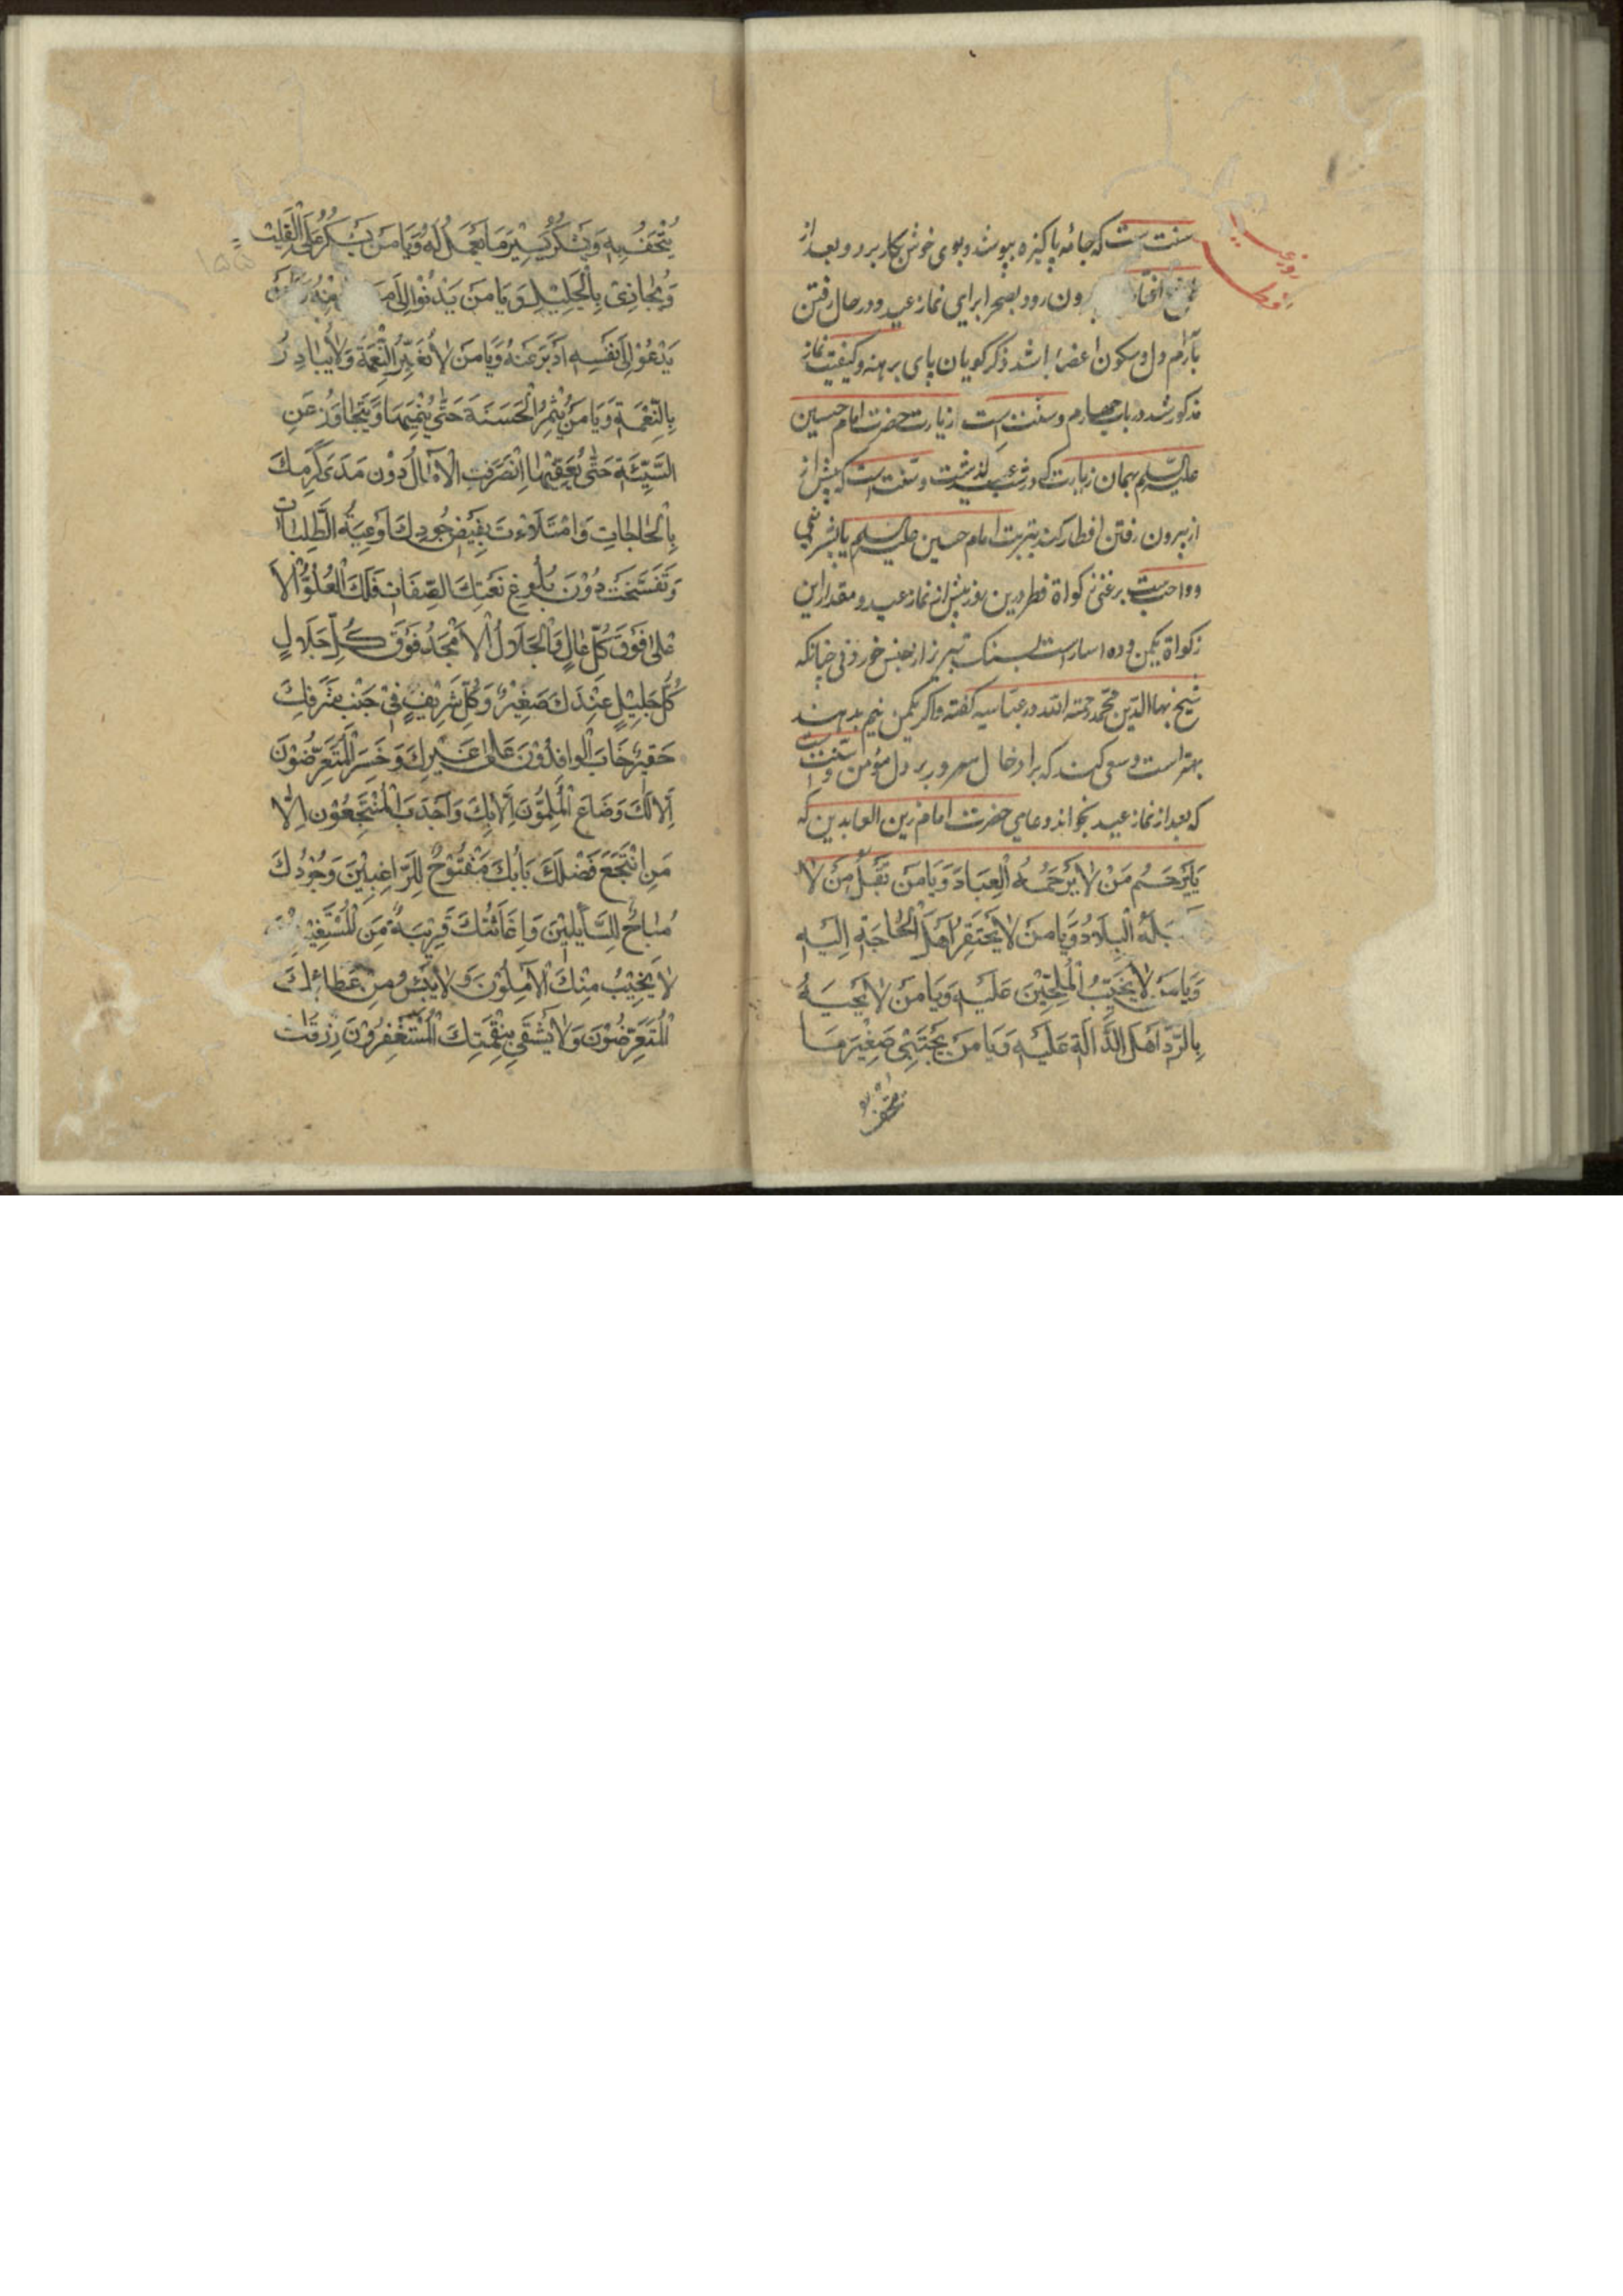 روز عید
فطر
سنت است که جامهٔ پاکیزه بپوشد و بوی خوش بکار برد و بعد از
ون رود بصحرا برای نماز عید و در حال رفتن
بآرام دل و سکون اعضا باشد ذکر گویان پای برهنه و کیفیت نماز
مذکور شد در باب چهارم و سنت است از زیارت حضرت امام حسین
علیه السلم بهمان زیارت که در شب عید گذشت و سنت است که پیش از
از بیرون رفتن افطار کند بتربت امام حسین علیه السلم یا بشیرینی
و واجب است بر غنی زکواة فطر درین روز پیش از نماز عید و مقدار این
زکواة یکمن و ده استار است بسنک تبریز از جنس خوردنی چنانکه
شیخ بهاالدین محمد رحمته الله در عباسیه کفته و اکر یکمن نیم بدهند
بهتر است و سعی کند که برا دخال سرور بر دل مؤمن و سنت است
که بعد از نماز عید بخواند دعای حضرت امام زین العابدین که
یَا یَرْحَمُ مَنْ لَا یَرْحَمُهُ الْعِبَادُ وَیَا مَنْ تَقْبَلُ مَنْ لَا
بَلُهُ الْبِلَادُ وَیَا مَنْ لَا یَحْتَقِرُ اَهْلَ الْحَاجَةِ اِلَیْهِ
وَیَا مَنْ لَا یُخَیِّبُ الْمُلِحِّیْنَ عَلَیْهِ وَیَا مَنْ لَا یَجْبَهُ
بِالرَّدِّ اَهْلَ الدَّالَّةِ عَلَیْهِ وَیَا مَنْ یَجْتَبِیْ صَغِیْرَ مَا
یتحف به
یُتْحَفُ بِهِ وَیَشْکُرُ یَسِیْرَ مَا یُعْمَلُ لَهُ وَیَا مَنْ یَشْکُرُ عَلَی الْقَلِیْلِ
۱۵۵
وَیُجَازِیْ بِالْجَلِیْلِ وَیَا مَنْ یَدْنُوْ اِلَی مَ مِنْهُ
یَدْعُوْ اِلَی نَفْسِهِ اَدْبَرَ عَنْهُ وَیَا مَنْ لَا یُغَیِّرُ النِّعْمَةَ وَلَا یُبَادِرُ
بِالنِّعْمَةِ وَیَا مَنْ یُثْمِرُ الْحَسَنَةَ حَتّٰی یُنْمِیَهَا وَیَتَجَاوَزُ عَنِ
السَّیِّئَةِ حَتّٰی یُعَفِّیَهَا اِنْصَرَفَتِ الْاٰمَالُ دُوْنَ مَدَی کَرَمِکَ
بِالْحَاجَاتِ وَامْتَلَاَتْ بِفَیْضِ جُوْدِکَ اَوْعِیَةُ الطَّلِبَاتِ
وَتَفَسَّخَتْ دُوْنَ بُلُوْغِ نَعْتِکَ الصِّفَاتُ فَلَکَ الْعُلُوُّ الْاَ
عْلٰی فَوْقَ کُلِّ عَالٍ وَالْجَلَالُ الْاَمْجَدُ فَوْقَ کُلِّ جَلَالٍ
کُلُّ جَلِیْلٍ عِنْدَکَ صَغِیْرٌ وَکُلُّ شَرِیْفٍ فِیْ جَنْبِ شَرَفِکَ
حَقِیْرٌ خَابَ الْوَافِدُوْنَ عَلٰی غَیْرِکَ وَخَسِرَ الْمُتَعَرِّضُوْنَ
اِلَّا لَکَ وَضَاعَ الْمُلِمُّوْنَ اِلَّا بِکَ وَاَجْدَبَ الْمُنْتَجِعُوْنَ اِلَّا
مَنِ انْتَجَعَ فَضْلَکَ بَابُکَ مَفْتُوْحٌ لِلرَّاغِبِیْنَ وَجُوْدُکَ
مُبَاحٌ لِلسَّائِلِیْنَ وَاِغَاثَتُکَ قَرِیْبَةٌ مِنَ الْمُسْتَغِیْثِیْنَ
لَا یَخِیْبُ مِنْکَ الْاٰمِلُوْنَ وَلَا یَیْئَسُ مِنْ عَطَائِکَ
الْمُتَعَرِّضُوْنَ وَلَا یَشْقَی بِنِقْمَتِکَ الْمُسْتَغْفِرُوْنَ رِزْقُکَ